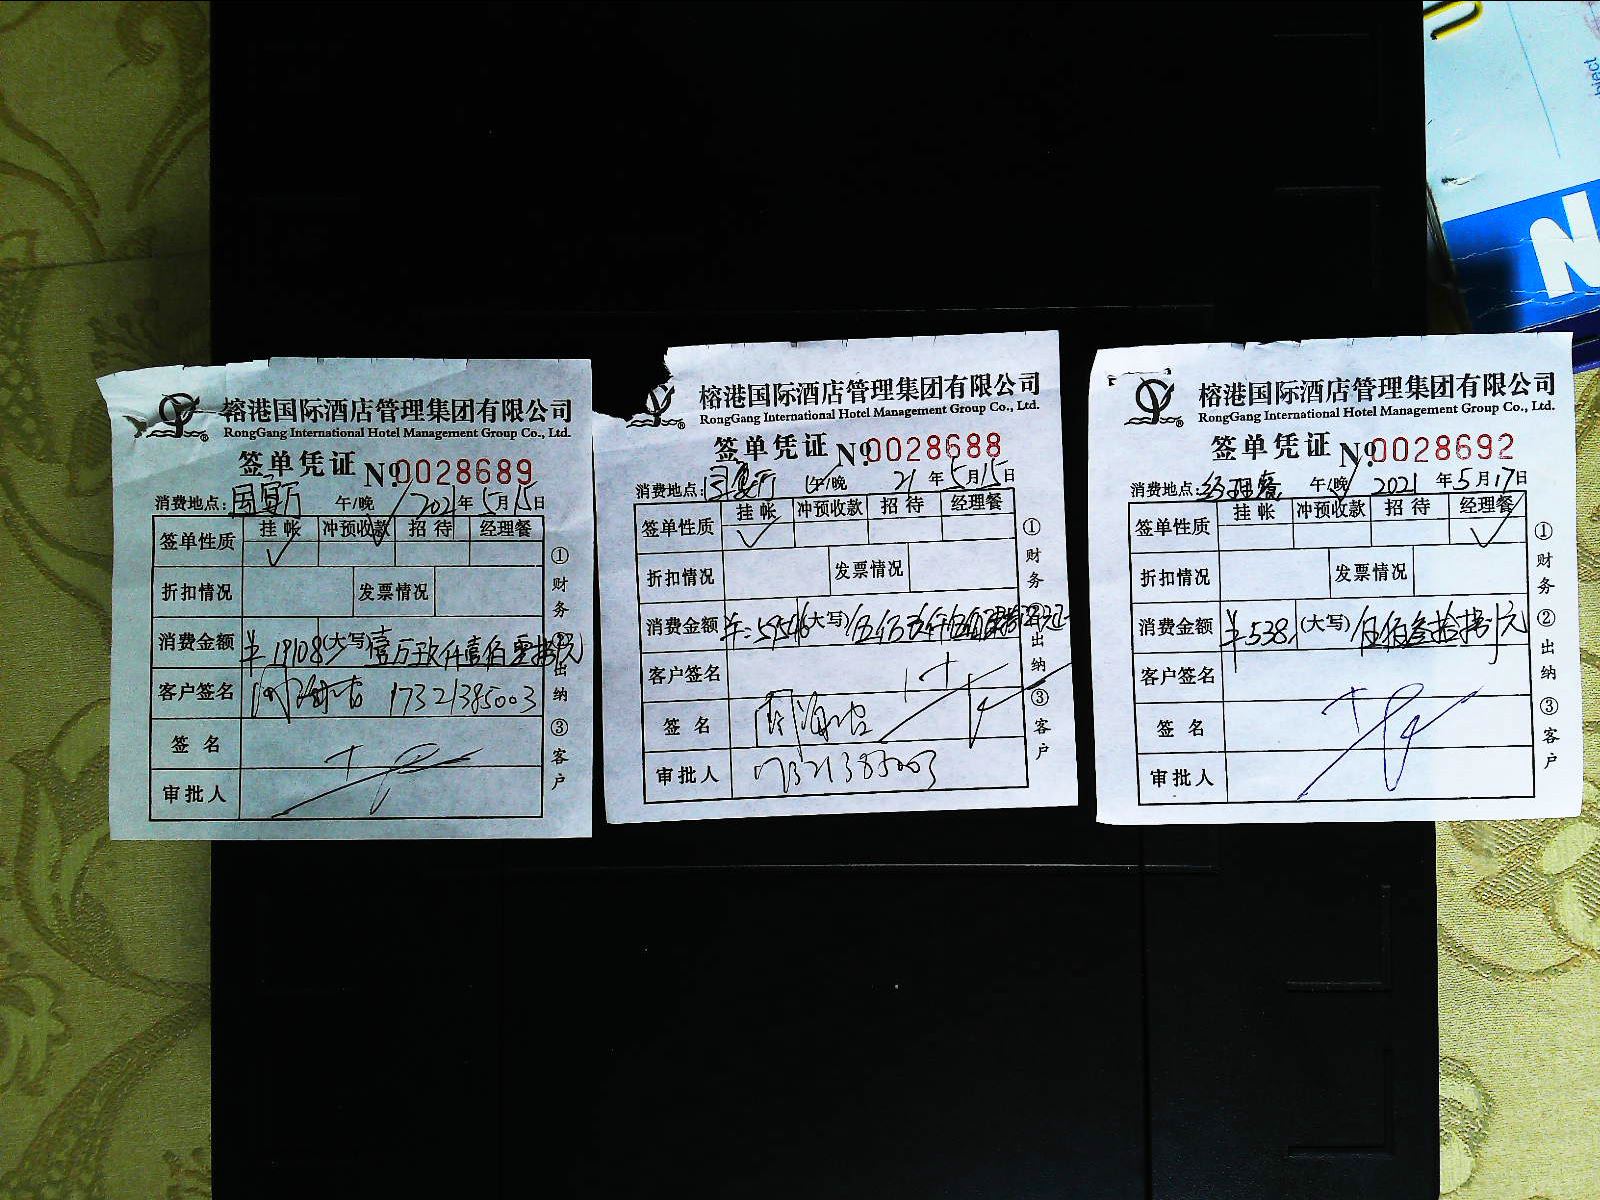 榕港国际酒店管理集团有限公司
RongGang International Hotel Management Group Co., Ltd.
签单凭证 No.0028689
消费地点:国宴厅 午/晚 2021年5月15日
签单性质 挂帐 冲预收款 招待 经理餐
✓
折扣情况 发票情况
消费金额 ¥19108 (大写)壹万玖仟壹佰零捌元
客户签名 17321385003
签名
审批人
①财务 ②出纳 ③客户
榕港国际酒店管理集团有限公司
RongGang International Hotel Management Group Co., Ltd.
签单凭证 No.0028688
消费地点:国宴厅 午/晚 21年5月15日
签单性质 挂帐 冲预收款 招待 经理餐
✓
折扣情况 发票情况
消费金额 (大写)
客户签名
签名
审批人 17321385003
①财务 ②出纳 ③客户
榕港国际酒店管理集团有限公司
RongGang International Hotel Management Group Co., Ltd.
签单凭证 No.0028692
消费地点:经理餐 午/晚 2021年5月17日
签单性质 挂帐 冲预收款 招待 经理餐
✓
折扣情况 发票情况
消费金额 ¥538. (大写)伍佰叁拾捌元
客户签名
签名
审批人
①财务 ②出纳 ③客户
N